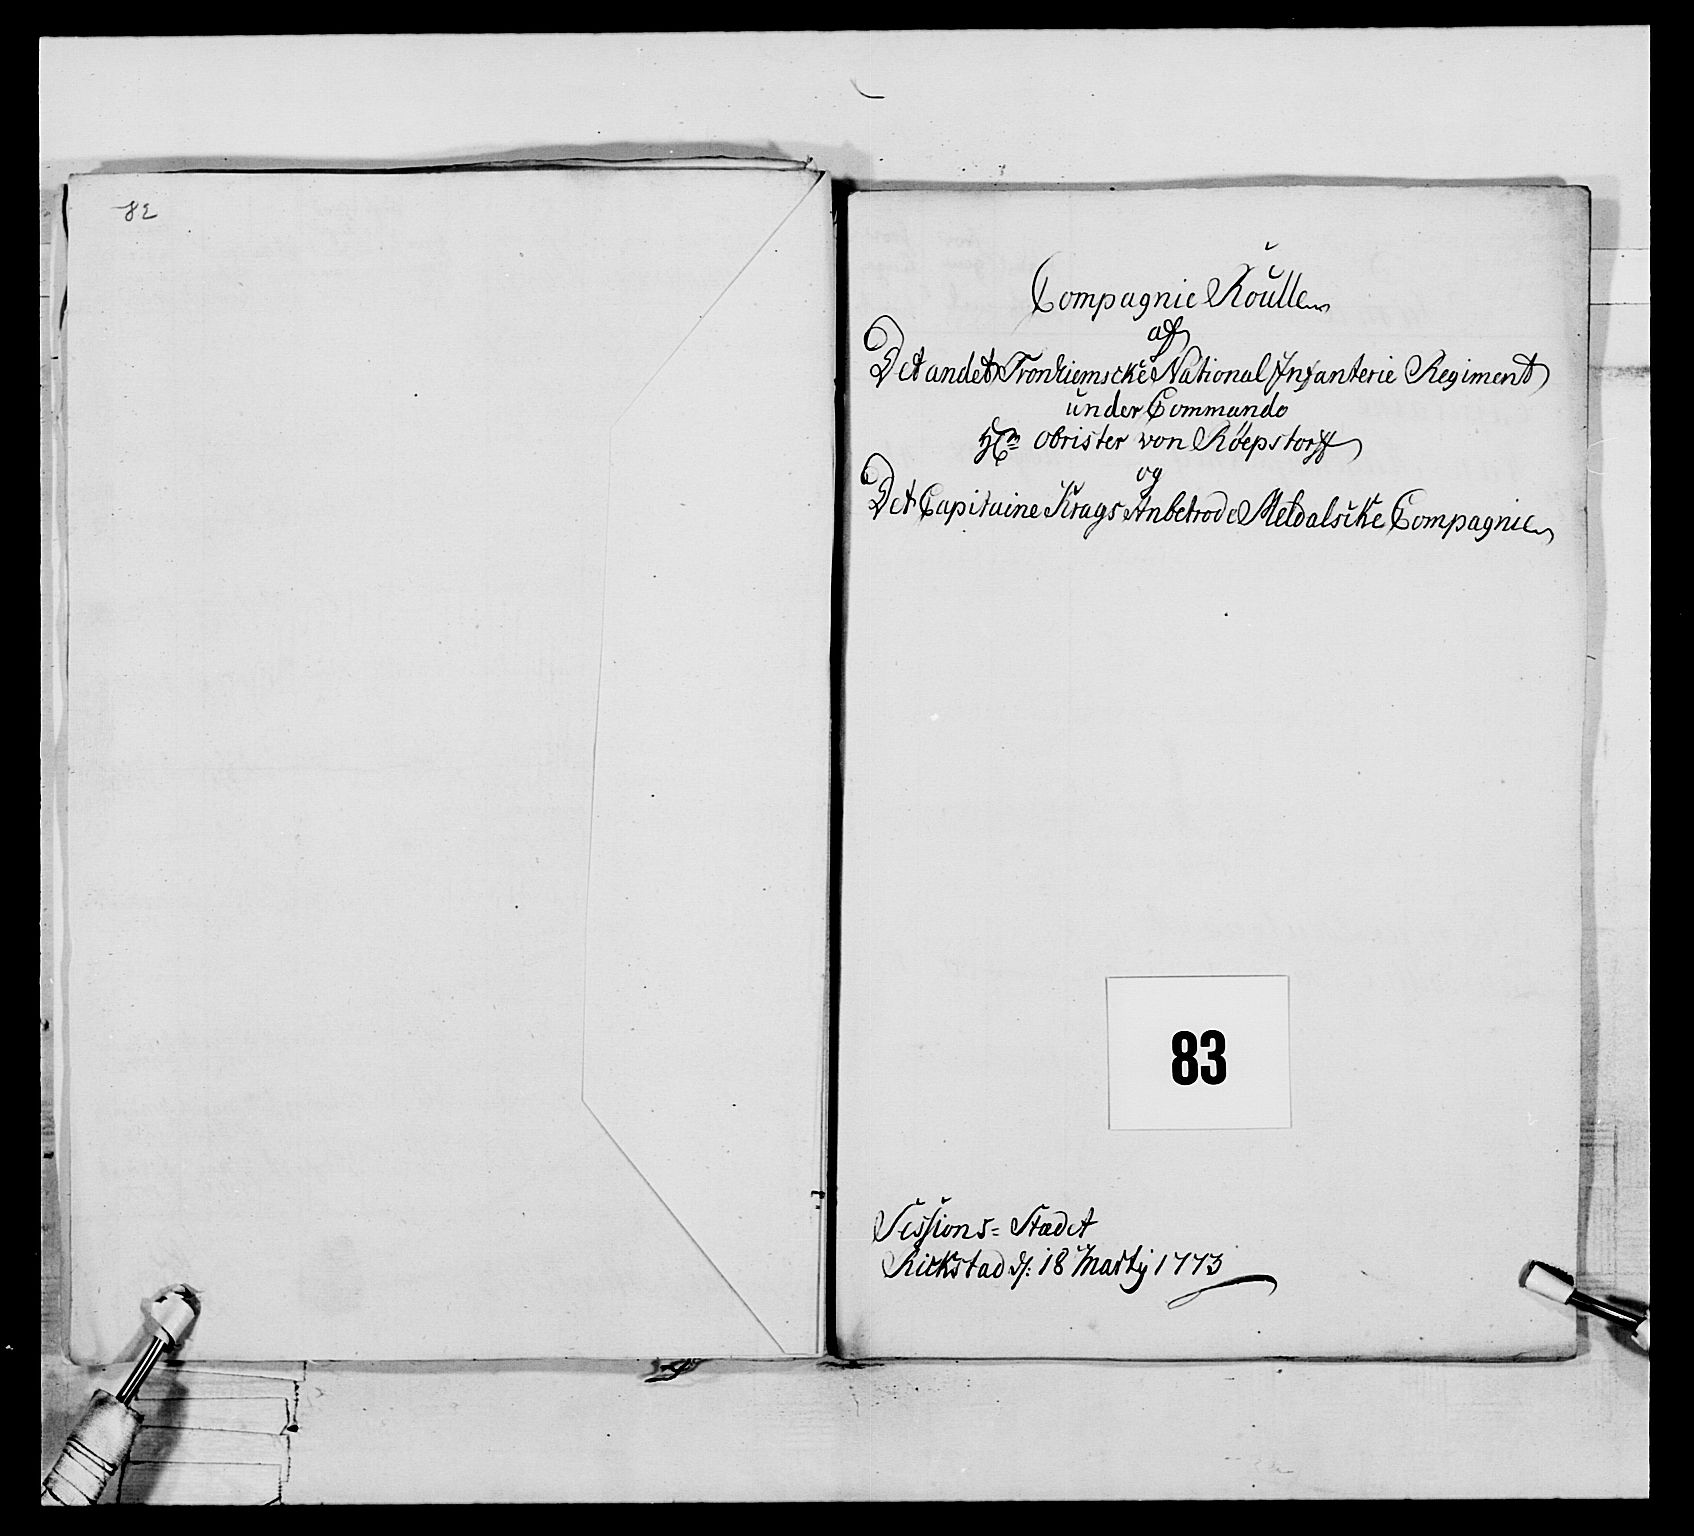 82
Compagnie Roulle
af
Det andet Tronhiemscke National Infanterie Regiment
under Commando
Hrn Obrister von Röepstorff
og
Det Capitaine Krags Anbetrode Meldalscke Compagnie
83
Sessions= Stædet
Rickstad d: 18 Martij 1773